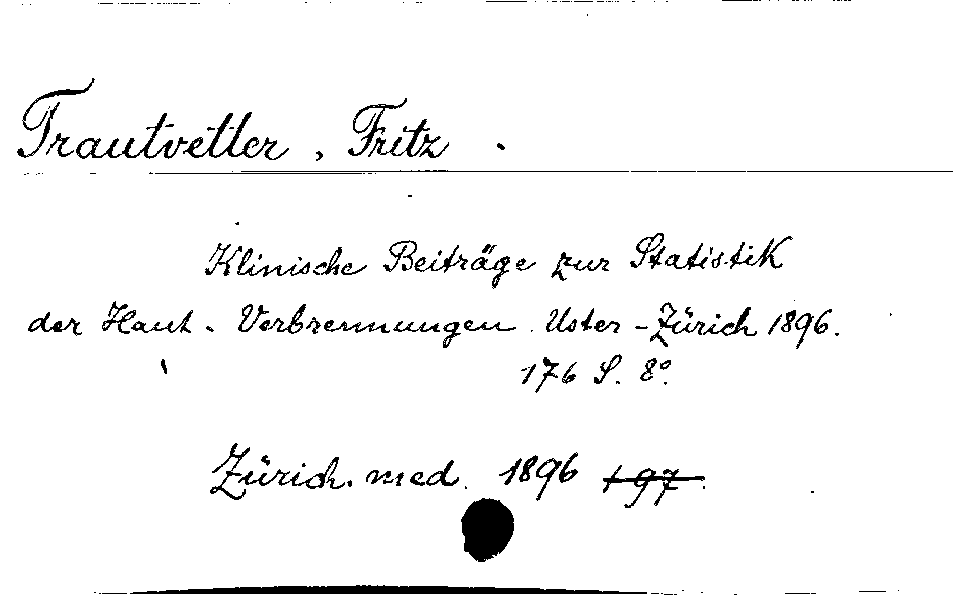 Trautvetter, Fritz.
Klinische Beiträge zur Statistik
der Haut-Verbrennungen. Uster-Zürich 1896.
176 S. 8°.
Zürich. med. 1896 197.